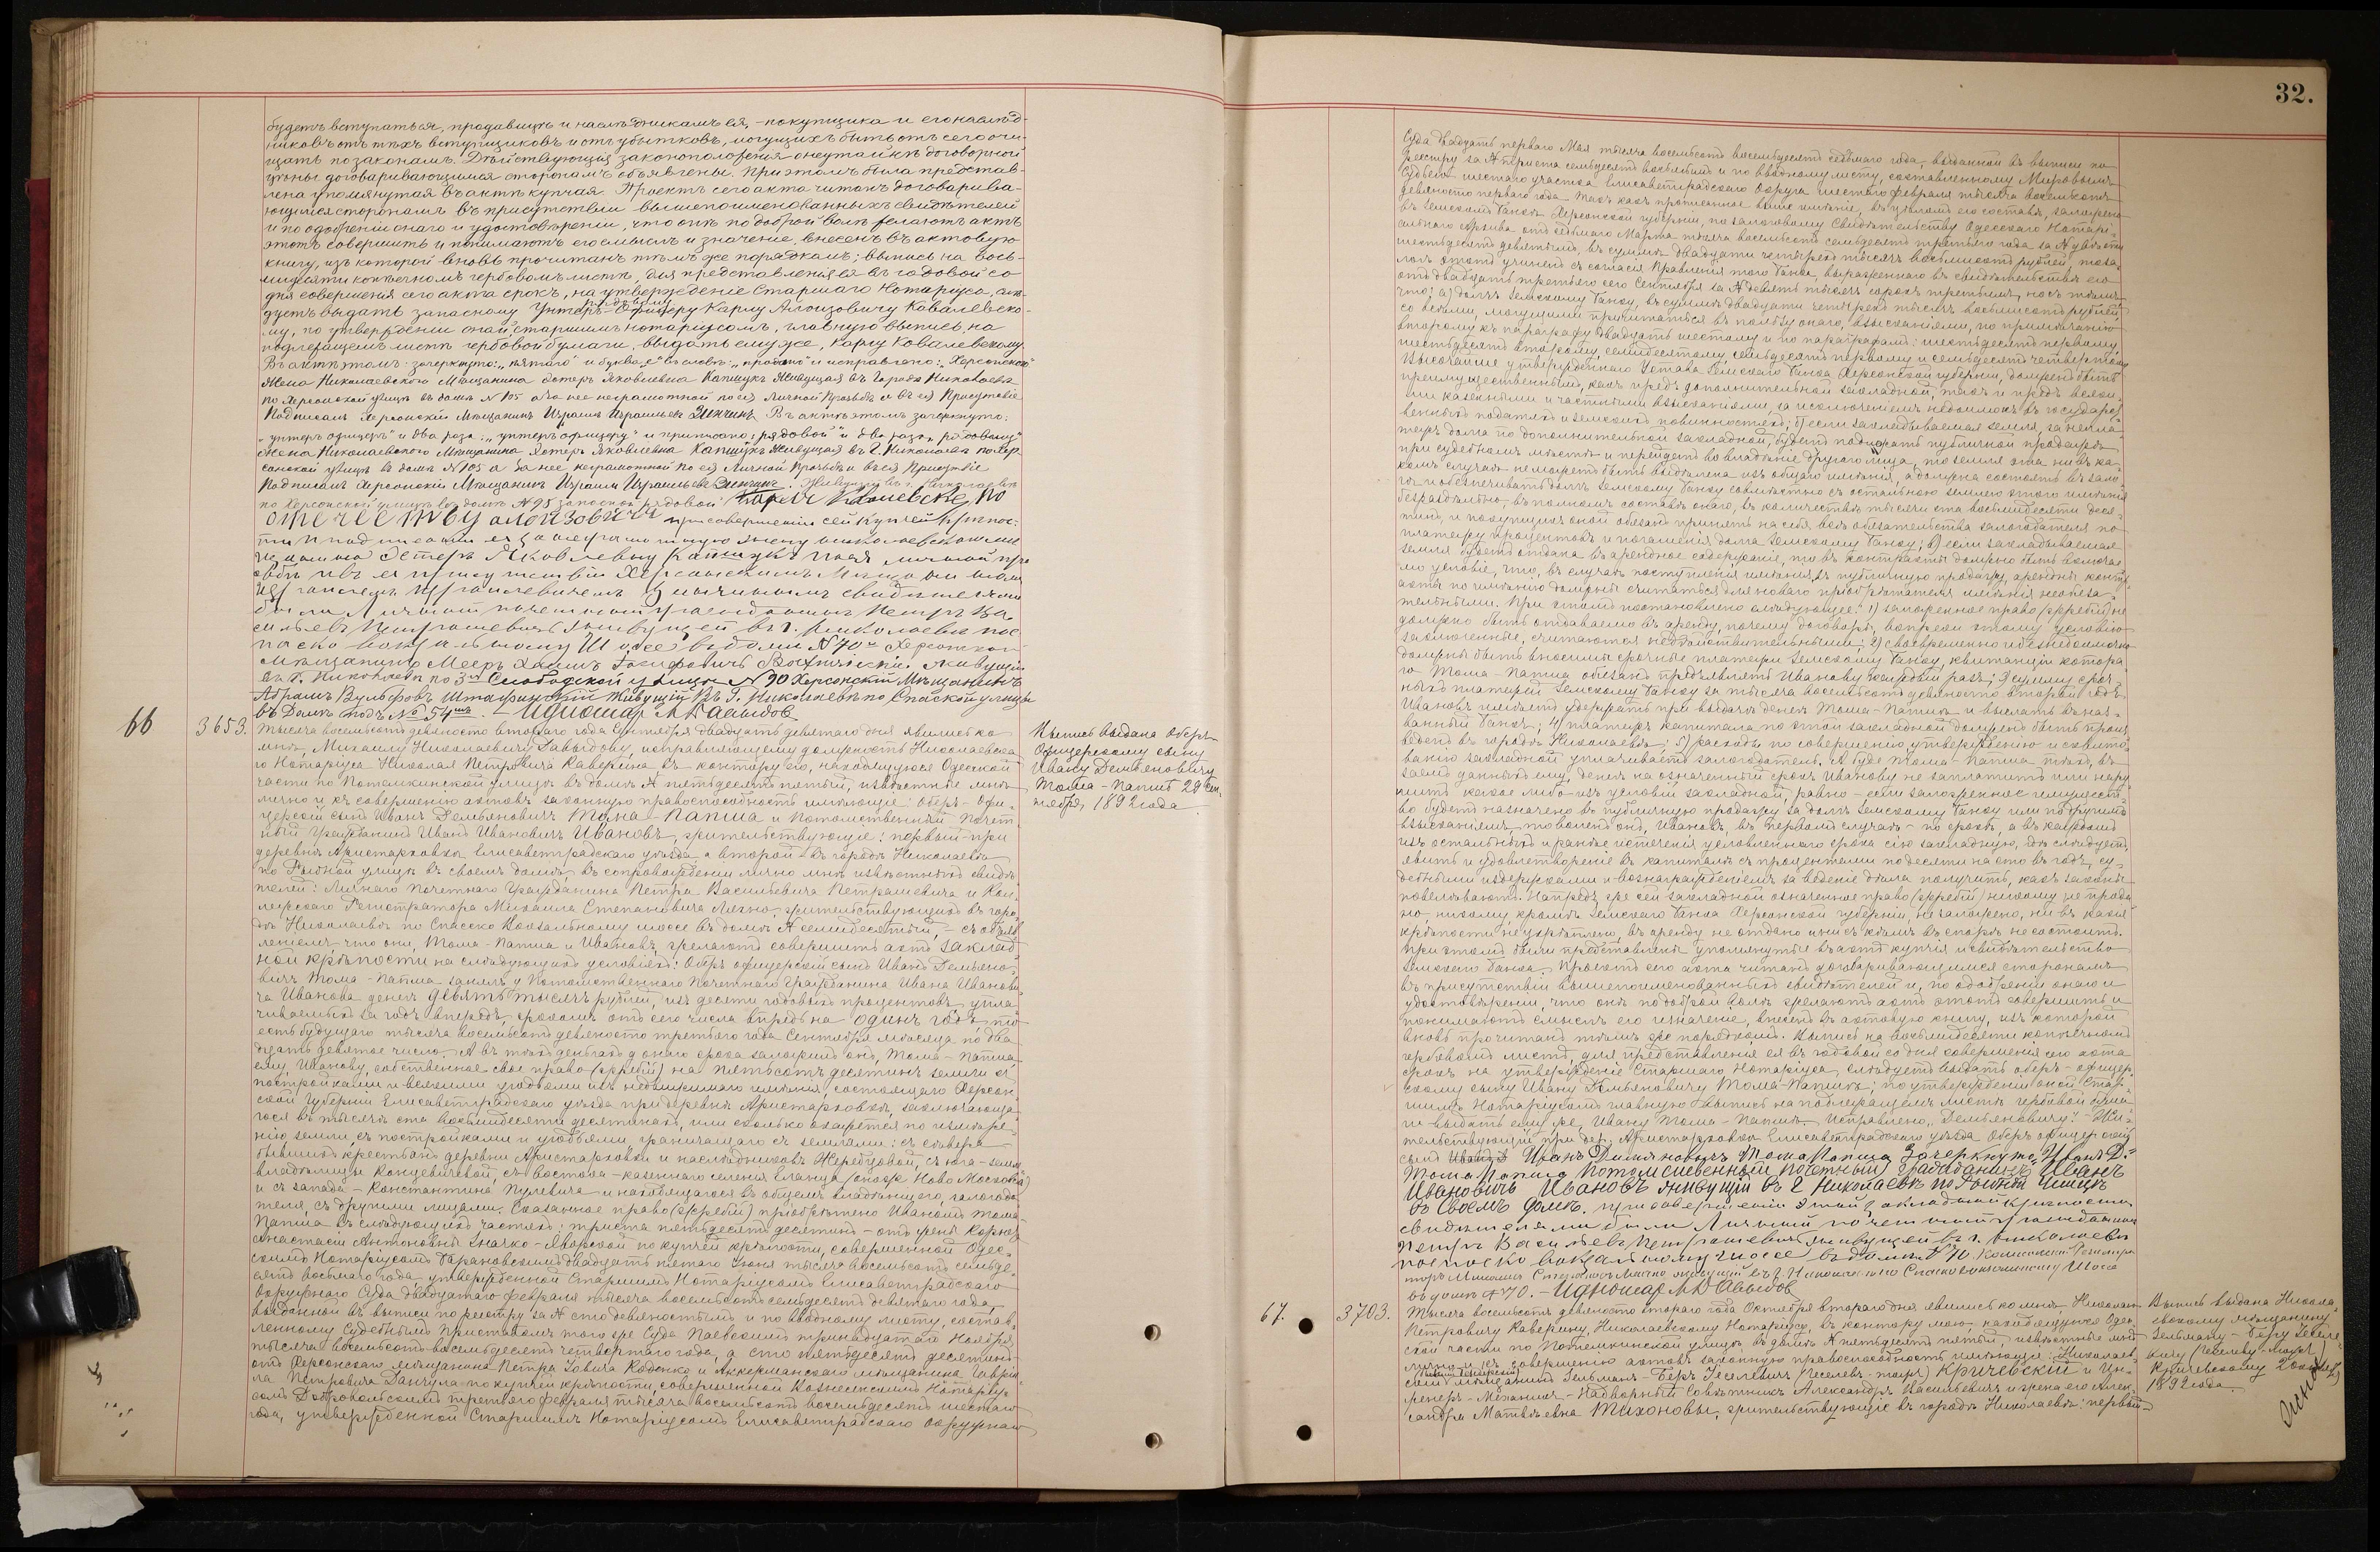 32.
будетъ вступаться, продавицѣ и наслѣдникамъ ея, - покупщика и его наслѣд-
никовъ отъ тѣхъ вступщиковъ и отъ убытковъ, могущихъ быть отъ сего очи-
щать по законамъ. Дѣйствующія законоположенія о неутайкѣ договорной
цѣны договаривающимся сторонамъ объявлены. При этомъ была представ-
лена упомянутая въ актѣ купчая. Проектъ сего акта читанъ договарива-
ющимся сторонамъ въ присутствіи вышепоименованныхъ свидѣтелей
и по одобреніи онаго и удостовѣреніи, что онѣ по доброй волѣ желаютъ актъ
этотъ совершить и понимаютъ его смыслъ и значеніе, внесенъ въ актовую
книгу, изъ которой вновь прочитанъ тѣмъ же порядкомъ; выпись на вось-
мидесяти копѣечномъ гербовомъ листѣ, для представленія ея въ годовой со
дня совершенія сего акта срокъ, на утвержденіе Старшаго Нотаріуса, слѣ-
дуетъ выдать запасному Унтеръ-Офицеру рядовому Карлу Алоизовичу Ковалевско-
му, по утвержденіи оной старшимъ нотаріусомъ, главную выпись, на
подлежащемъ листѣ гербовой бумаги, выдать ему же, Карлу Ковалевскому.
Въ актѣ этомъ: зачеркнуто: „пятаго" и буква „е" въ словѣ: и исправлено: „Херсонской"
Жена Николаевского Мѣщанина Эстеръ Яковлевна Капщукъ Живущая въ Городѣ Николаевѣ
по Херсонской улицѣ въ домѣ N 105 а за нее неграмотной по ея Личной Просьбѣ и въ ея Присутствіе
Подписалъ Херсонскій Мѣщанинъ Израиль Израильевъ Зинчинъ. Въ актѣ этомъ зачеркнуто:
„унтеръ офицеръ" и два раза: „унтеръ офицеру" и приписано: рядовой" и два раза „рядовому"
Жена Николаевского Мѣщанина Эстеръ Яковлевна Капщукъ Живущая въ Г. Николаевѣ по Хер-
сонской улицѣ въ домѣ N 105 а за нее неграмотной по ея Личной Просьбѣ и въ ея Присутствіе
Подписалъ Херсонскій Мѣщанинъ Израиль Израильевъ Зинчинъ. Живущій въ г. Николаевѣ
по Херсонской улицѣ въ домѣ N 95 запасной рядовой Карлъ Ковалевскій, по
отечеству алоизовичъ при совершеніи сей купчей крѣпос-
ти и подписаніи ея за неграмотную жену николаевскаго мѣ-
щанина Эстеръ Яковлевну Капщукъ по ея личной про
сьбѣ и въ ея присутствіи Херсонскимъ Мѣщаниномъ
Израилемъ Израилевичемъ Зинчинымъ свидѣтелями
были Личный почетный гражданинъ Петръ Ва
сильевъ Петрашевичъ живущей въ г. Николаевѣ по с
паско вокзальному Шоссе въ домѣ N 70 Херсонской
мѣщанинъ Мееръ Хаимъ живущій
въ г. Николаевѣ по 3й Слободской улицѣ N 90 Херсонскій Мѣщанинъ
Абрамъ Вульфовъ Живущій Въ Г. Николаевѣ по Спаской улицѣ
въ Домѣ подъ № 54мъ. - Иднотар МДавыдов
66
3653.
Тысяча восемьсотъ девяносто втораго года Сентября двадцать девятаго дня явились ко
мнѣ, Михаилу Николаевичу Давыдову, исправляющему должность Николаевска
го Нотаріуса Николая Петровича Каверина въ - контору его, находящуюся Одесской
части по Потемкинской улицѣ въ домѣ N пятьдесятъ пятый, извѣстные мнѣ
лично и къ совершенію актовъ законную правоспособность имѣющіе: Оберъ-Офи-
церскій сынъ Иванъ Демьяновичъ Тома-Папша и Потомственный Почет
ный Гражданинъ Иванъ Ивановичъ Ивановъ, жительствующіе: первый - при
деревнѣ Аристарховкѣ Елисаветградскаго уѣзда а второй - въ городѣ Николаевѣ
по Рыбной улицѣ въ своемъ домѣ, въ сопровожденіи лично мнѣ извѣстныхъ свидѣ
телей: Личнаго Почетнаго Гражданина Петра Васильевича Петрашевича и Кол-
лежскаго Регистратора Михаила Степановича Махно, жительствующихъ въ горо
дѣ Николаевѣ по Спасско Вокзальному шоссе въ домѣ N семидесятый, - съ объяв
леніемъ что они, Тома-Папша и Ивановъ, желаютъ совершить актъ заклад
ной крѣпости на слѣдующихъ условіяхъ: Оберъ офицерскій сынъ Иванъ Демьяно-
вичъ Тома-Папша занялъ у Потомственнаго Почетнаго Гражданина Ивана Иванови
ча Иванова денегъ девять тысячъ рублей, изъ десяти годовыхъ процентовъ, упла
чиваемыхъ за годъ впередъ, срокомъ отъ сего числа впредь на одинъ годъ, то
есть будущаго тысяча восемьсотъ девяносто третьяго года Сентября мѣсяца по два
дцать девятое число. А въ тѣхъ деньгахъ до онаго срока заложилъ онъ, Тома-Папша,
ему, Иванову, собственное свое право (жребій) на пятьсотъ десятинъ земли съ
постройками и всякими угодьями изъ недвижимаго имѣнія, состоящаго Херсон
ской Губерніи Елисаветградскаго уѣзда при деревнѣ Аристарховкѣ, заключающа-
гося въ тысячѣ ста восьмидесяти десятинахъ, или сколько окажется по измѣре-
нію земли, съ постройками и угодьями, граничащаго съ землями: съ сѣвера
бывшихъ крестьянъ деревни Аристарховки и наслѣдниковъ Жеребцовой, съ юга - земля
владѣлицы Концевичевой, съ востока - казеннаго селенія Еланца (онаже Ново Московка)
и съ запада - Константина Пулевича и находящагося въ общемъ владѣніи его, залогода
теля, съ другими лицами. Сказанное право (жребій) пріобрѣтено Иваномъ Тома-
Папша въ слѣдующихъ частяхъ: триста пятьдесятъ десятинъ - отъ жены Корнета
Анастасіи Антоновны Значко-Яворской по купчей крѣпости, совершенной Одес-
скимъ Нотаріусомъ Барановскимъ двадцать пятаго Іюня тысяча восемьсотъ семьде-
сятъ восьмаго года, утвержденной Старшимъ Нотаріусомъ Елисаветградскаго
Окружнаго Суда двадцатаго февраля тысяча восемьсотъ семьдесятъ девятаго года,
выданной въ выписи по реестру за N сто девяностымъ и по вводному листу, состав-
ленному Судебнымъ Приставомъ того же Суда Паевскимъ тринадцатаго Ноября
тысяча восемьсотъ восемьдесятъ четвертаго года, а сто пятьдесятъ десятинъ
отъ Херсонскаго мѣщанина Петра Іовича Коденко и Аккерманскаго мѣщанина Гаврі
ла Петровича Данчула - по купчей крѣпости, совершенной Вознесенскимъ Нотаріу-
сомъ Добровольскимъ третьяго Февраля тысяча восемьсотъ восемьдесятъ шестаго
года, утвержденной Старшимъ Нотаріусомъ Елисаветградскаго окружнаго
Выпись выдана Оберъ-
Офицерскому сыну
Ивану Демьяновичу
Тома-Папшѣ 29 Сен-
тября 1892 года
Суда двадцать перваго Мая тысяча восемьсотъ восемьдесятъ седьмаго года, выданной въ выписи по
реестру за N триста семьдесятъ восьмымъ и по вводному листу, составленному Мировымъ
Судьею шестаго участка Елисаветградскаго Округа шестаго февраля тысяча восемьсотъ
девяносто перваго года. Такъ какъ прописанное выше имѣніе, въ цѣломъ его составѣ, заложено
въ Земскомъ Банкѣ Херсонской губерніи, по залоговому Свидѣтельству Одесскаго Нотарі-
альнаго Архива отъ седьмаго Марта тысяча восемьсотъ семьдесятъ третьяго года за N двѣсти
шестьдесятъ девятымъ, въ суммѣ двадцати четырехъ тысячъ восьмисотъ рублей, то за-
логъ этотъ учиненъ съ согласія Правленія того Банка, выраженнаго въ свидѣтельствѣ его
отъ двадцать третьяго сего Сентября за N девять тысячъ сорокъ третьимъ, но съ тѣмъ
что: а) долгъ Земскому Банку, въ суммѣ двадцати четырехъ тысячъ восьмисотъ рублей
со всѣми, могущими причитаться въ пользу онаго, взысканіями, по примѣчанію
второму къ параграфу двадцать шестому и по параграфамъ: шестьдесятъ первому,
шестьдесятъ второму, семидесятому, семьдесятъ первому и семьдесятъ четвертому
Высочайше утвержденнаго Устава Земскаго Банка Херсонской губерніи, долженъ быть
преимущественнымъ, какъ предъ дополнительной закладной, такъ и предъ всяки-
ми казенными и частными взысканіями, за исключеніемъ недоимокъ въ государст
венныхъ податяхъ и земскихъ повинностяхъ; б) если закладываемая земля, за непла-
тежъ долга по дополнительной закладной, будетъ подвергать публичной продажѣ
при судебномъ мѣстѣ и перейдетъ во владѣніе другаго лица, то земля эта ни въ ка-
комъ случаѣ не можетъ быть выдѣлена изъ общаго имѣнія, а должна состоять въ зало
гѣ и обезпечивать долгъ Земскому Банку совмѣстно съ остальною землею этого имѣнія
безраздѣльно, въ полномъ составѣ онаго, въ количествѣ тысячи ста восьмидесяти деся-
тинъ, и покупщикъ оной обязанъ принять на себя всѣ обязательства залогодателя по
платежу процентовъ и погашенія долга Земскому Банку; в) если закладываемая
земля будетъ отдана въ арендное содержаніе, то въ контрактѣ должно быть включе-
но условіе, что, въ случаѣ поступленія имѣнія въ публичную продажу, арендный контр
актъ по имѣнію долженъ считаться для новаго пріобрѣтателя имѣнія необяза-
тельнымъ. При этомъ постановлено слѣдующее: 1) заложенное право (жребій) не
должно быть отдаваемо въ аренду, почему договоры, вопреки этому условію
заключенные, считаются недѣйствительными; 2) своевременно и безнедоимочно
должны быть вносимы срочные платежи Земскому Банку, квитанціи котора
го Тома-Папша обязанъ предъявлять Иванову каждый разъ; 3) сумму сроч
ныхъ платежей Земскому Банку за тысяча восемьсотъ девяносто второй годъ
Ивановъ имѣетъ удержать при выдачѣ денегъ Тома-Папшѣ и выслать въ наз-
ванный Банкъ; 4) платежъ капитала по этой закладной долженъ быть произ
веденъ въ городѣ Николаевѣ; 5) расходы по совершенію, утвержденію и
ванію закладной уплачиваетъ залогодатель. А буде Тома-Папша тѣхъ, въ
заемъ данныхъ ему, денегъ на означенный срокъ Иванову не заплатитъ или нару
шитъ какое либо изъ условій закладной, равно - если заложенное имущест
во будетъ назначено въ публичную продажу за долгъ Земскому Банку или по другимъ
взысканіямъ, то воленъ онъ, Ивановъ, въ первомъ случаѣ - по срокѣ, а въ каждомъ
изъ остальныхъ и ранѣе истеченія условленнаго срока сію закладную, гдѣ слѣдуетъ,
явить и удовлетвореніе въ капиталѣ съ процентами по десяти на сто въ годъ, су-
дебными издержками и вознагражденіемъ за веденіе дѣла получить, какъ законы
повелѣваютъ. Напредъ же сей закладной означенное право (жребій) никому не прода-
но, никому, кромѣ Земскаго Банка Херсонской губерніи, не заложено, ни въ какія
крѣпости не укрѣплено, въ аренду не отдано и ни съ кѣмъ въ спорѣ не состоитъ.
При этомъ были представлены упомянутые въ актѣ купчія и свидѣтельство
Земскаго Банка. Проектъ сего акта читанъ договаривающимся сторонамъ
въ присутствіи вышепоименованныхъ свидѣтелей и, по одобреніи онаго и
удостовѣреніи, что онѣ по доброй волѣ желаютъ актъ этотъ совершить и
понимаютъ смыслъ его и значеніе, внесенъ въ актовую книгу, изъ которой
вновь прочитанъ тѣмъ же порядкомъ. Выпись на восьмидесяти копѣечномъ
гербовомъ листѣ, для представленія ея въ годовой со дня совершенія сего акта
срокъ на утвержденіе Старшаго Нотаріуса, слѣдуетъ выдать оберъ-офицер-
скому сыну Ивану Демьяновичу Тома-Папшѣ; по утвержденіи оной Стар-
шимъ Нотаріусомъ главную выпись на подлежащемъ листѣ гербовой бума
ги выдать ему же, Ивану Тома-Папшѣ. Исправлено: „Демьяновичу". - Жи-
тельствующій при дер. Аристарховкѣ Елисаветградскаго уѣзда Оберъ офицерскій
сынъ Иванъ Демьяновичъ Тома Папша Зачеркнуто „Иванъ Д."
Тома Папша Потомственный почетный гражданинъ Иванъ
Ивановичъ Ивановъ живущій въ г Николаевѣ по Рыбной улицѣ
въ своемъ домѣ. при совершеніи этой закладной крѣпости
свидѣтелями были Личный почетный гражданинъ
Петръ Васильевъ Петрашевичъ живущей въ г. Николаевѣ
по спаско вокзальному шоссе въ домѣ N 70 Колежскій Регистра
торъ Михаилъ Степановъ Махно живущій въ г. Николаевѣ по Спасковокзальному Шоссе
въ домѣ N 70. - Иднотар МДавыдов
67.
3703.
Тысяча восемьсотъ девяносто втораго года Октября втораго дня, явились ко мнѣ, Николаю
Петровичу Каверину, Николаевскому Нотаріусу, въ контору мою, находящуюся Одес
ской части по Потемкинской улицѣ въ домѣ N пятьдесятъ пятый, извѣстные мнѣ
лично и къ совершенію актовъ законную правоспособность имѣющіе: Николаев-
скій мѣщанинъ Зельманъ-Беръ Геселевъ (Чеселевъ-Мееръ) Кричевскій и Ин-
женеръ-Механикъ - Надворный Совѣтникъ Александръ Васильевичъ и жена его Алек-
сандра Матвѣевна Тихоновы, жительствующіе въ городѣ Николаевѣ: первый -
Выпись выдана Никола-
евскому мѣщанину
Зельману-Беру Геселе-
Кричевскому 2 Октября
1892 года